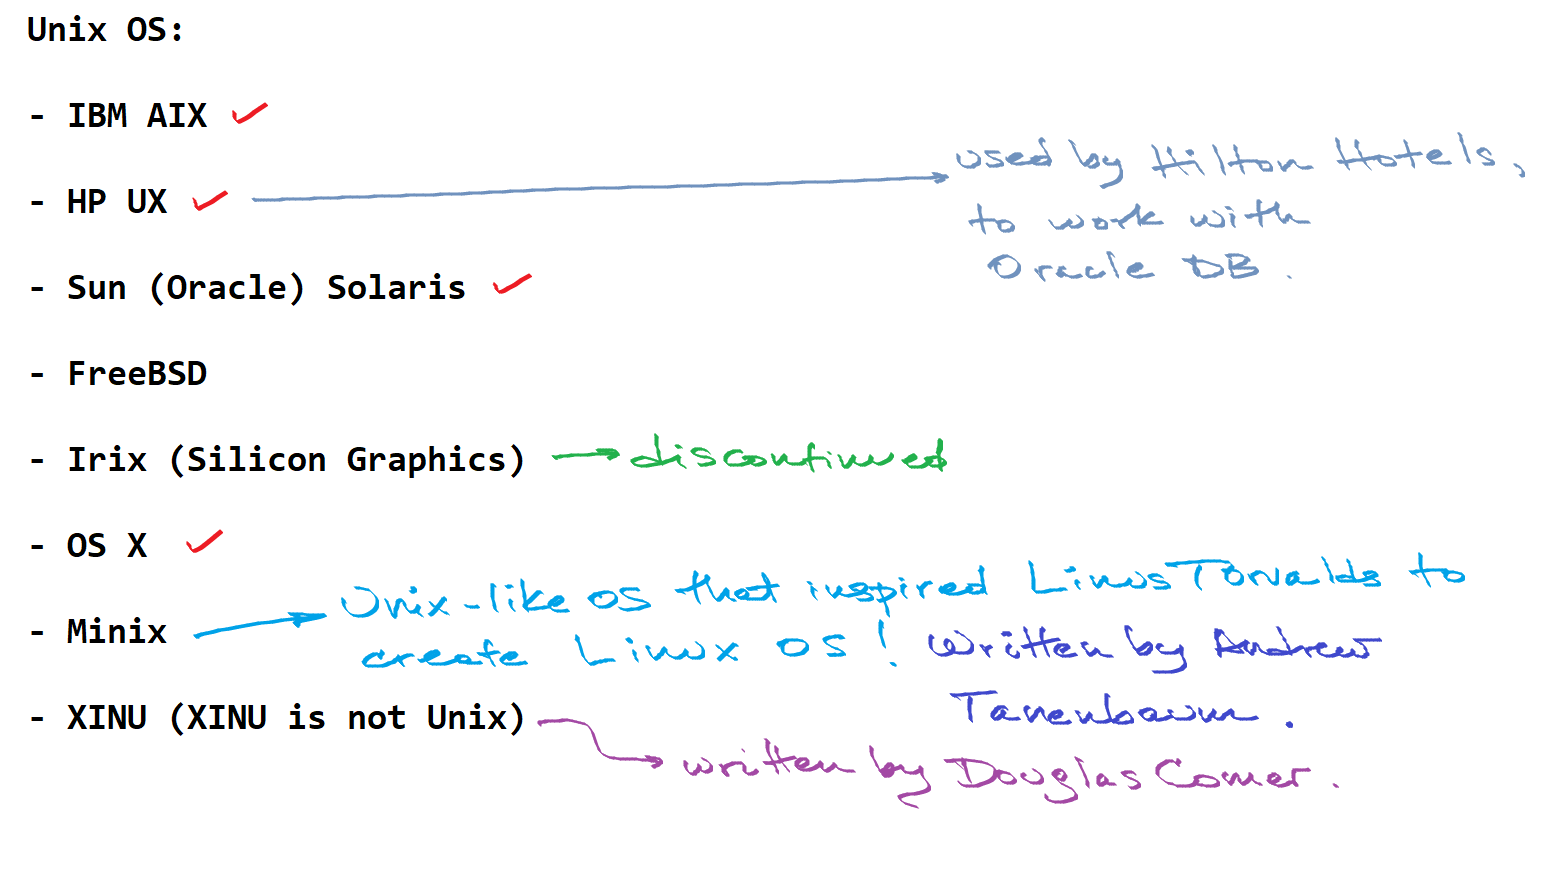 Unix OS:
- IBM AIX
used by Hilton Hotels,
- HP UX
to work with
Oracle DB.
- Sun (Oracle) Solaris
- FreeBSD
- Irix (Silicon Graphics) discontinued
- OS X
Unix-like OS that inspired Linus Torvalds to
- Minix
create Linux OS! Written by Andrew
Tanenbaum.
- XINU (XINU is not Unix)
written by Douglas Comer.